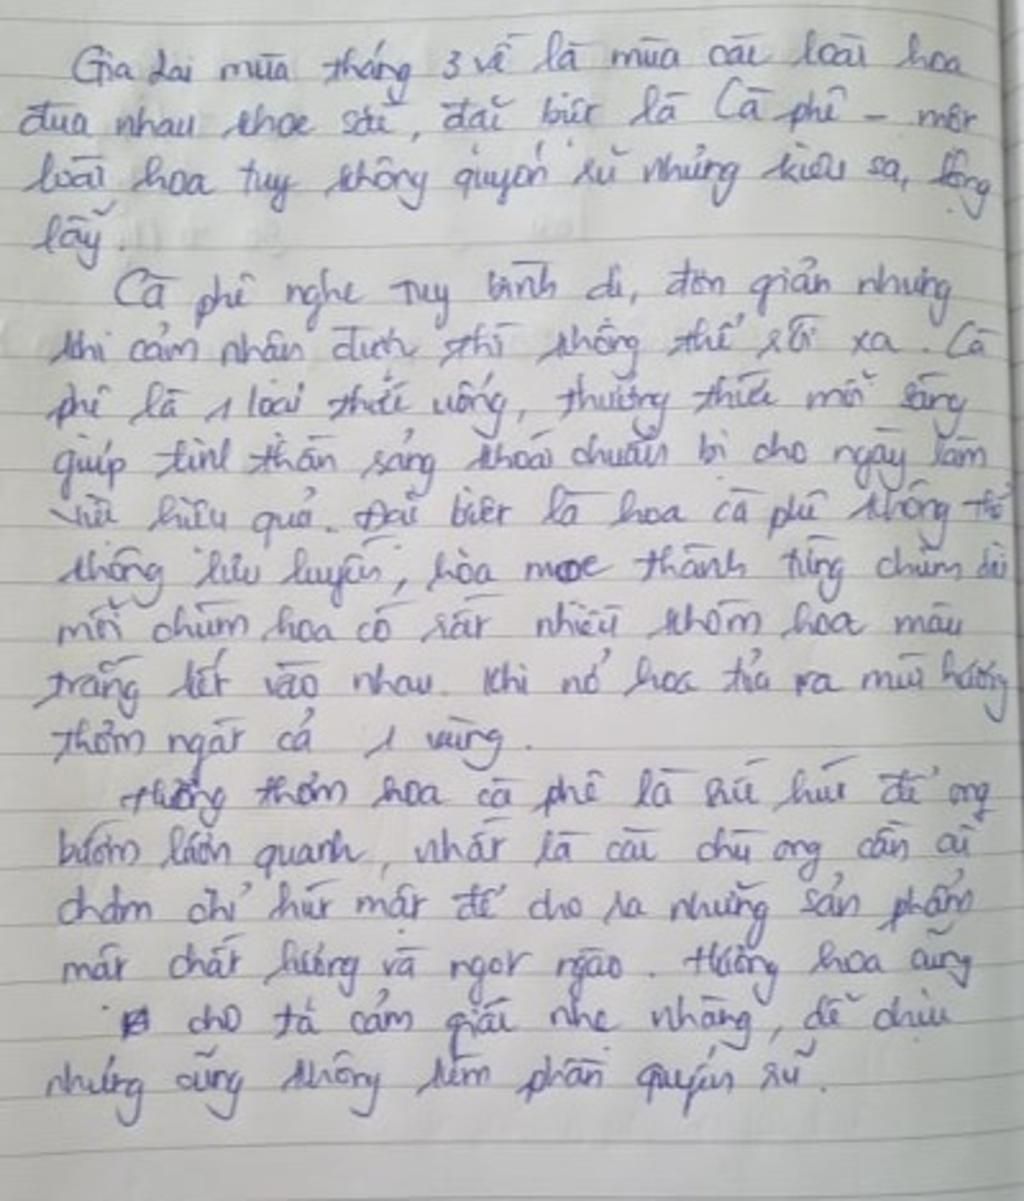 Gia Lai mùa tháng 3 về là mùa các loài hoa
đua nhau khoe sắc, đặc biệt là Cà phê - một
loài hoa tuy không quyến rũ nhưng kiêu sa, lộng
lẫy.
Cà phê nghe tuy bình dị, đơn giản nhưng
khi cảm nhận được thì không thể rời xa. Cà
phê là 1 loại thức uống, thưởng thức mỗi sáng
giúp tinh thần sảng khoái chuẩn bị cho ngày làm
việc hiệu quả. Đặc biệt là hoa cà phê không thể
không lưu luyến, hoa mọc thành từng chùm dài
mỗi chùm hoa có rất nhiều chòm hoa màu
trắng kết vào nhau. Khi nở hoa tỏa ra mùi hương
thơm ngát cả 1 vùng.
Hương thơm hoa cà phê là sức hút để ong
bướm lượn quanh, nhất là các chú ong cần cù
chăm chỉ hút mật để cho ra những sản phẩm
mật chất lượng và ngọt ngào. Hương hoa cũng
cho ta cảm giác nhẹ nhàng, dễ chịu
nhưng cũng không kém phần quyến rũ.